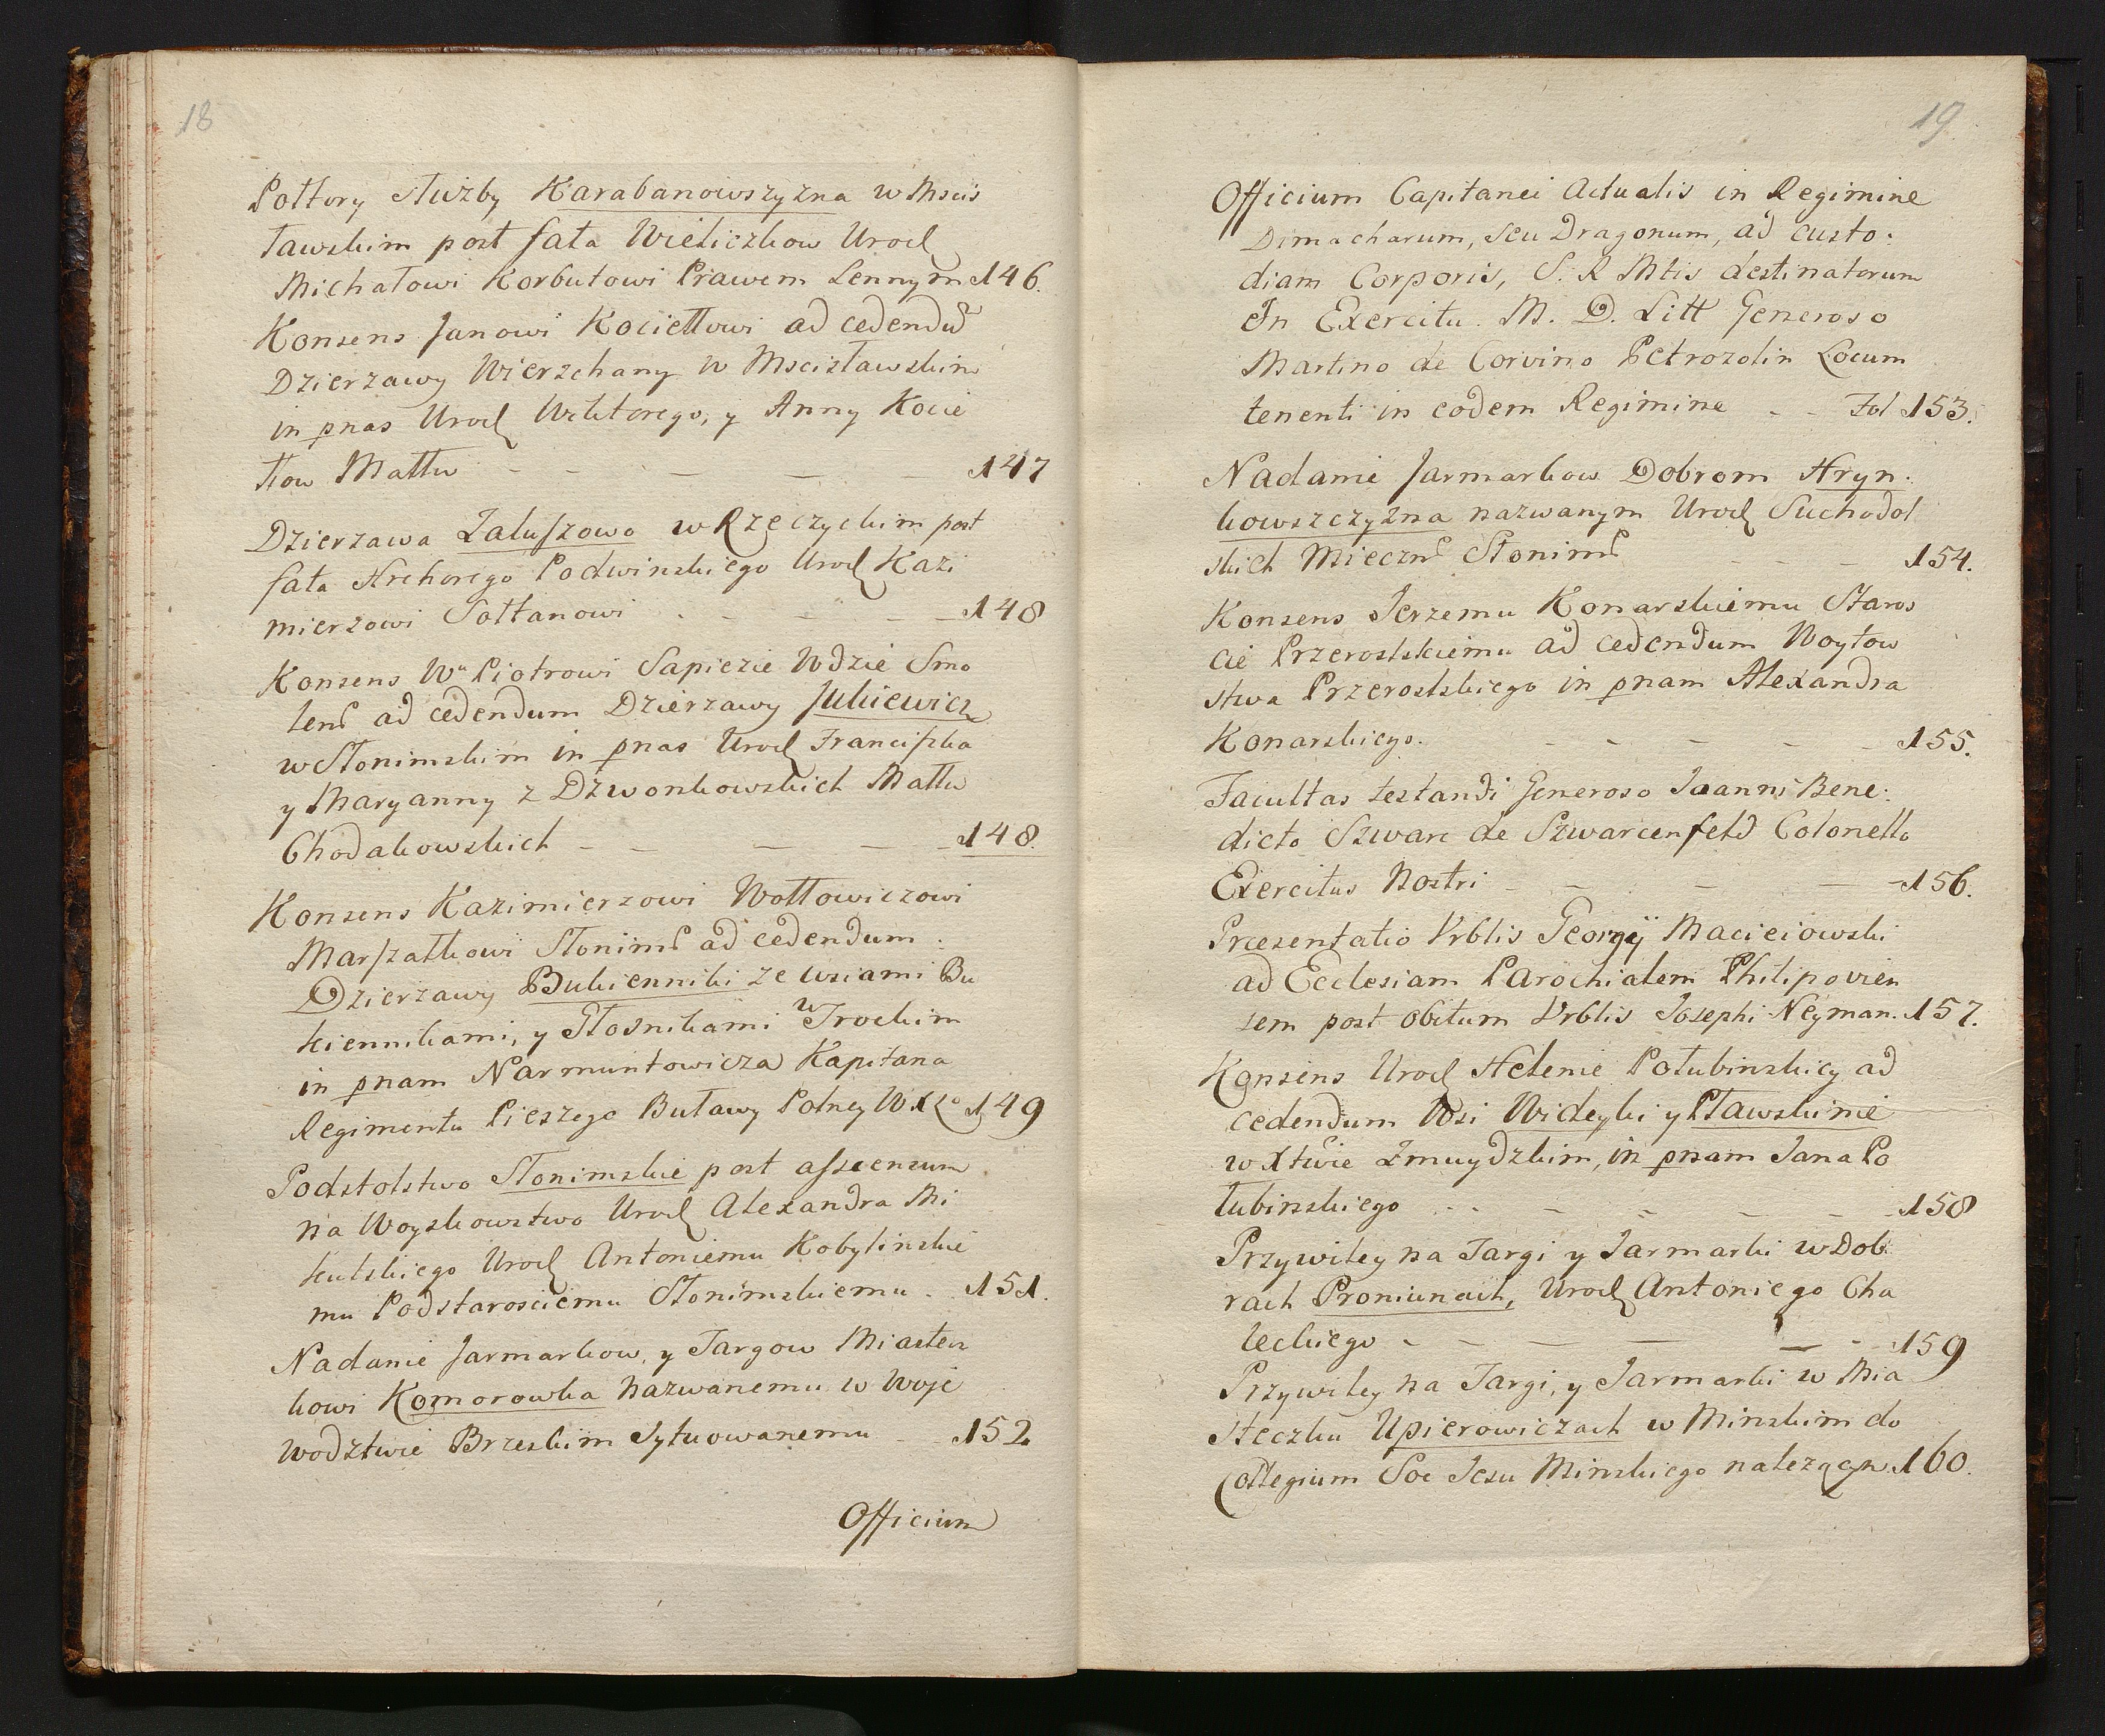 18
Połtory służby Karabanowszyzna w Mscis
ławskim post fata Wieliczkow Urodź
Michałowi Korbutowi Prawem Lennym 146.
Konsens Janowi Kociełłowi ad cedendū
Dzierzawy Wierzchany w Mscisławskim
in pnas Urodź Wiktorego, y Anny Kocie
łłow Małłw - - - - 147
Dzierzawa Załuszowo w Rzeczyckim post
fata Hrehorego Podwinskiego Urodź Kazi
mierzowi Sołtanowi - - - 148
Konsens Wu Piotrowi Sapiezie Wdzie Smo
lens ad cedendum Dzierzawy Jukiewicz
w Słonimskim in pnas Urodź Franciszka
y Maryanny z Dzwonkowskich Małłw
Chodakowskich - - - - 148.
Konsens Kazimierzowi Wołłowiczowi
Marszałkowi Słonims ad cedendum
Dzierzawy Bukienniki ze wsiami Bu
kiennikami, y Głosnikami w Trockim
in pnam Narmuntowicza Kapitana
Regimentu Pieszego Buławy Polney WXLo 149
Podstolstwo Słonimskie post assensum
na Woyskowstwo Urodź Alexandra Mi
kulskiego Urodź Antoniemu Kobylinskie
mu Podstarosciemu Słonimskiemu - 151.
Nadanie Jarmarkow, y Targow Miastecz
kowi Komorowka nazwanemu w Woje
wodztwie Brzeskim Sytuowanemu - 152
Officium
19
Officium Capitanei Actualis in Regimine
Dimacharum, seu Dragonum, ad custo:
diam Corporis, S. R Mtis destinatorum
In Exercitu. M. D. Litt Generoso
Martino de Corvino Petrozolin Locum
tenenti in eodem Regimine - - Fol 153.
Nadanie Jarmarkow Dobrom Hryn:
kowszczyzna nazwanym Urodź Suchodol
skich Mieczns Słonims - - - 154.
Konsens Jerzemu Konarskiemu Staros
cie Przerostskiemu ad cedendum Woytow
stwa Przerostskiego in pnam Alexandra
Konarskiego. - - - - - 155.
Facultas testandi Generoso Joanni Bene:
dicto Szwarc de Szwarcenfeld Colonello
Exercitus Nostri - - - - 156.
Præsentatio Vrblis Georgij Macieiowski
ad Ecclesiam Parochialem Philipovien
sem post obitum Vrblis Josephi Neyman. 157.
Konsens Urodź Helenie Połubinskiey ad
cedendum Wsi Wideyki y Pławskinie
w Xtwie Zmuydzkim, in pnam Jana Po
łubinskiego - - - - - 158
Przywiley na Targi y Jarmarki w Dob:
rach Proniunach, Urodź Antoniego Cha
leckiego - - - - - 159
Przywiley na Targi, y Jarmarki w Mia
steczku Upierowiczach w Minskim do
Collegium Soc Jesu Minskiego należącym. 160.